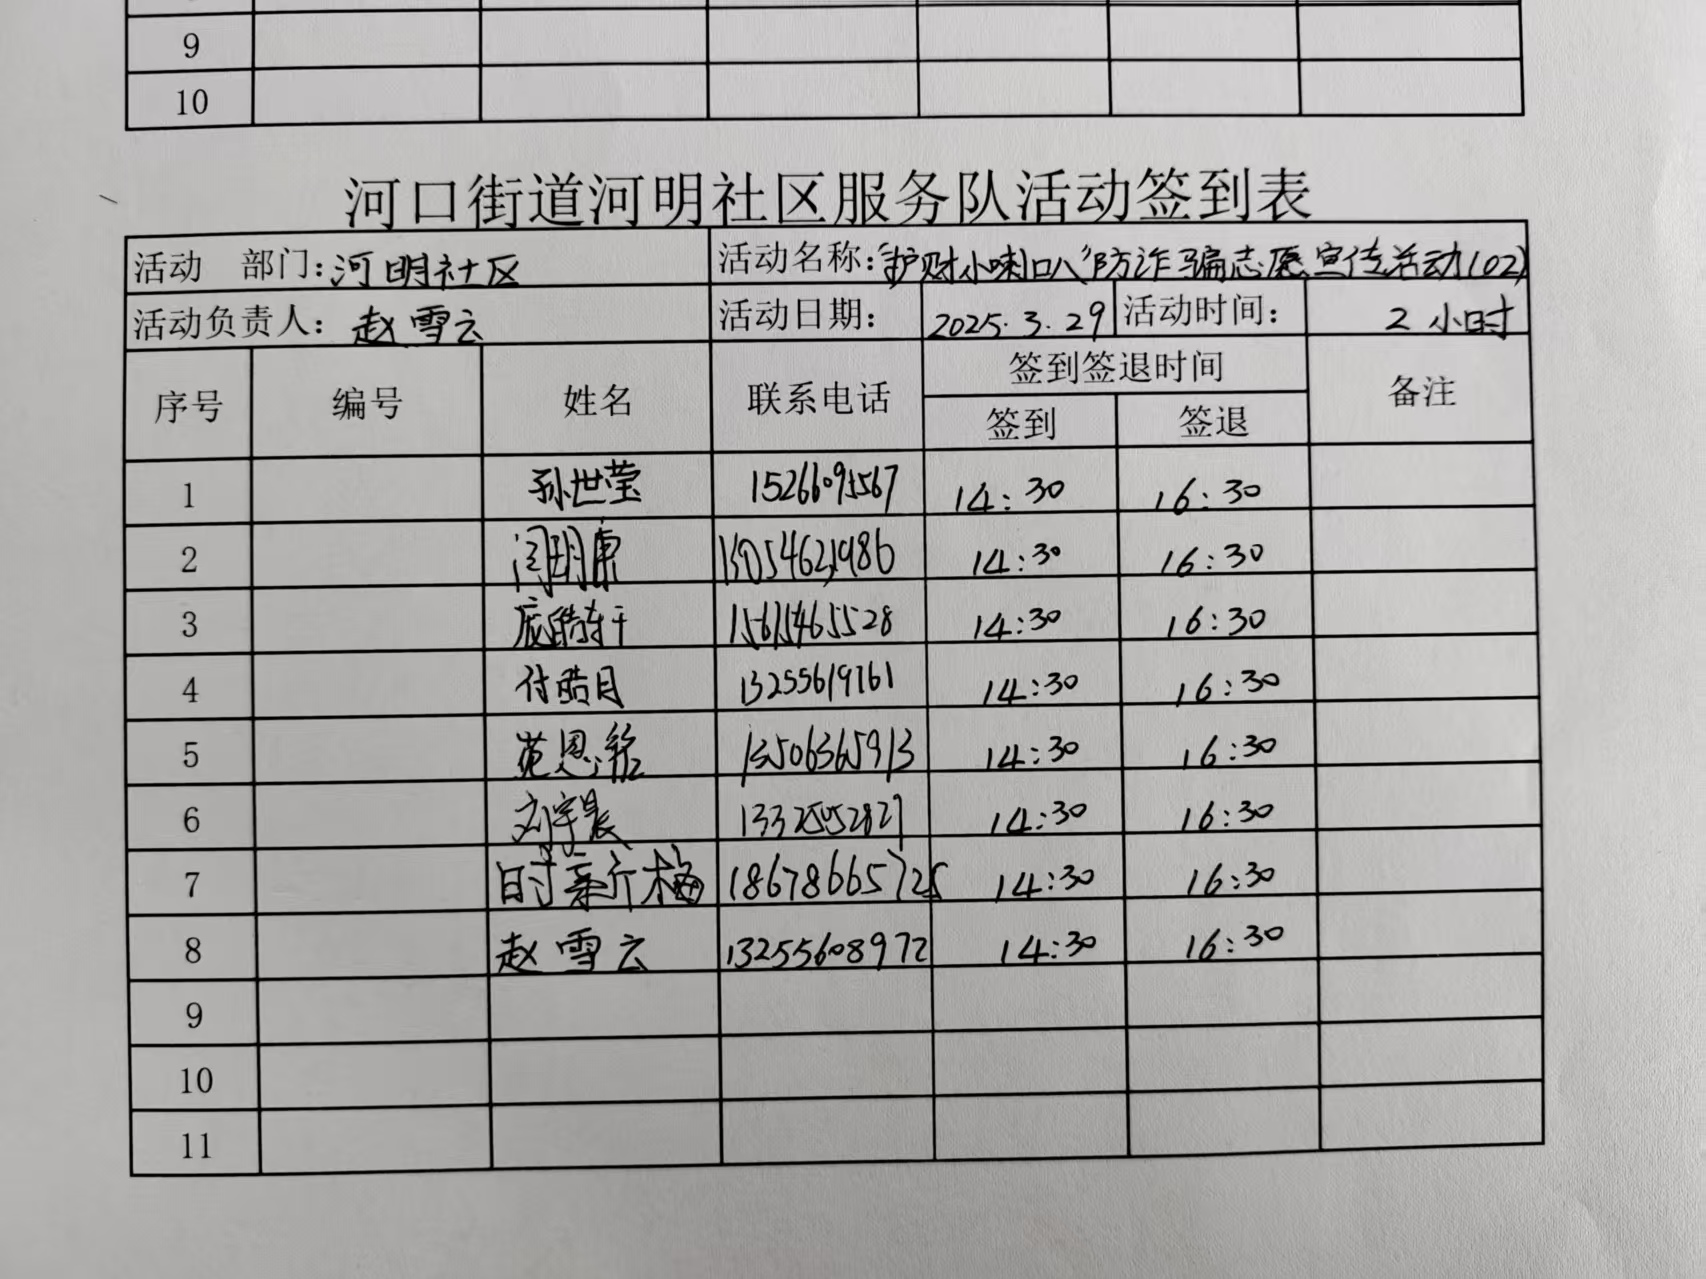 9
10
河口街道河明社区服务队活动签到表
活动 部门：河明社区 活动名称：“护财小喇叭”防诈骗志愿宣传活动(02)
活动负责人：赵雪云 活动日期： 2025.3.29 活动时间： 2小时
序号 编号 姓名 联系电话 签到签退时间 备注
签到 签退
1 孙世莹 15266095567 14:30 16:30
2 闫玥康 14:30 16:30
3 14:30 16:30
4 付皓月 13255619761 14:30 16:30
5 范恩铭 13506365913 14:30 16:30
6 刘宇晨 14:30 16:30
7 18678665725 14:30 16:30
8 赵雪云 13255608972 14:30 16:30
9
10
11